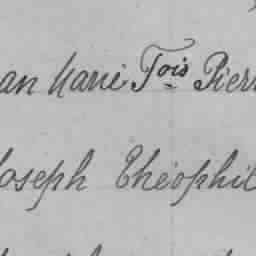 an Marie Fois Pierr
Joseph Théophil